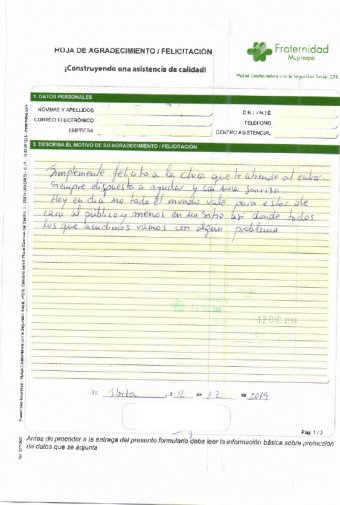 HOJA DE AGRADECIMIENTO / FELICITACIÓN
¡Construyendo una asistencia de calidad!
Fraternidad
Muprespa
Mutua Colaboradora con la Seguridad Social, 275
1. DATOS PERSONALES
NOMBRE Y APELLIDOS
D.N.I / N.I.E
CORREO ELECTRÓNICO
TELÉFONO
EMPRESA
CENTRO ASISTENCIAL
2. DESCRIBA EL MOTIVO DE SU AGRADECIMIENTO / FELICITACIÓN
Simplemente felicito a la chica que te atiende al entrar
siempre dispuesta a ayudar y con una sonrisa.
Hoy en dia no todo el mundo vale para estar de
cara al publico y menos en un sitio asi donde todos
los que acudimos vamos con algun problema
12 DIC 2019
En Ibiza, a 12 de 12 de 2019
Pág. 1 / 2
Antes de proceder a la entrega del presente formulario debe leer la información básica sobre protección
de datos que se adjunta.